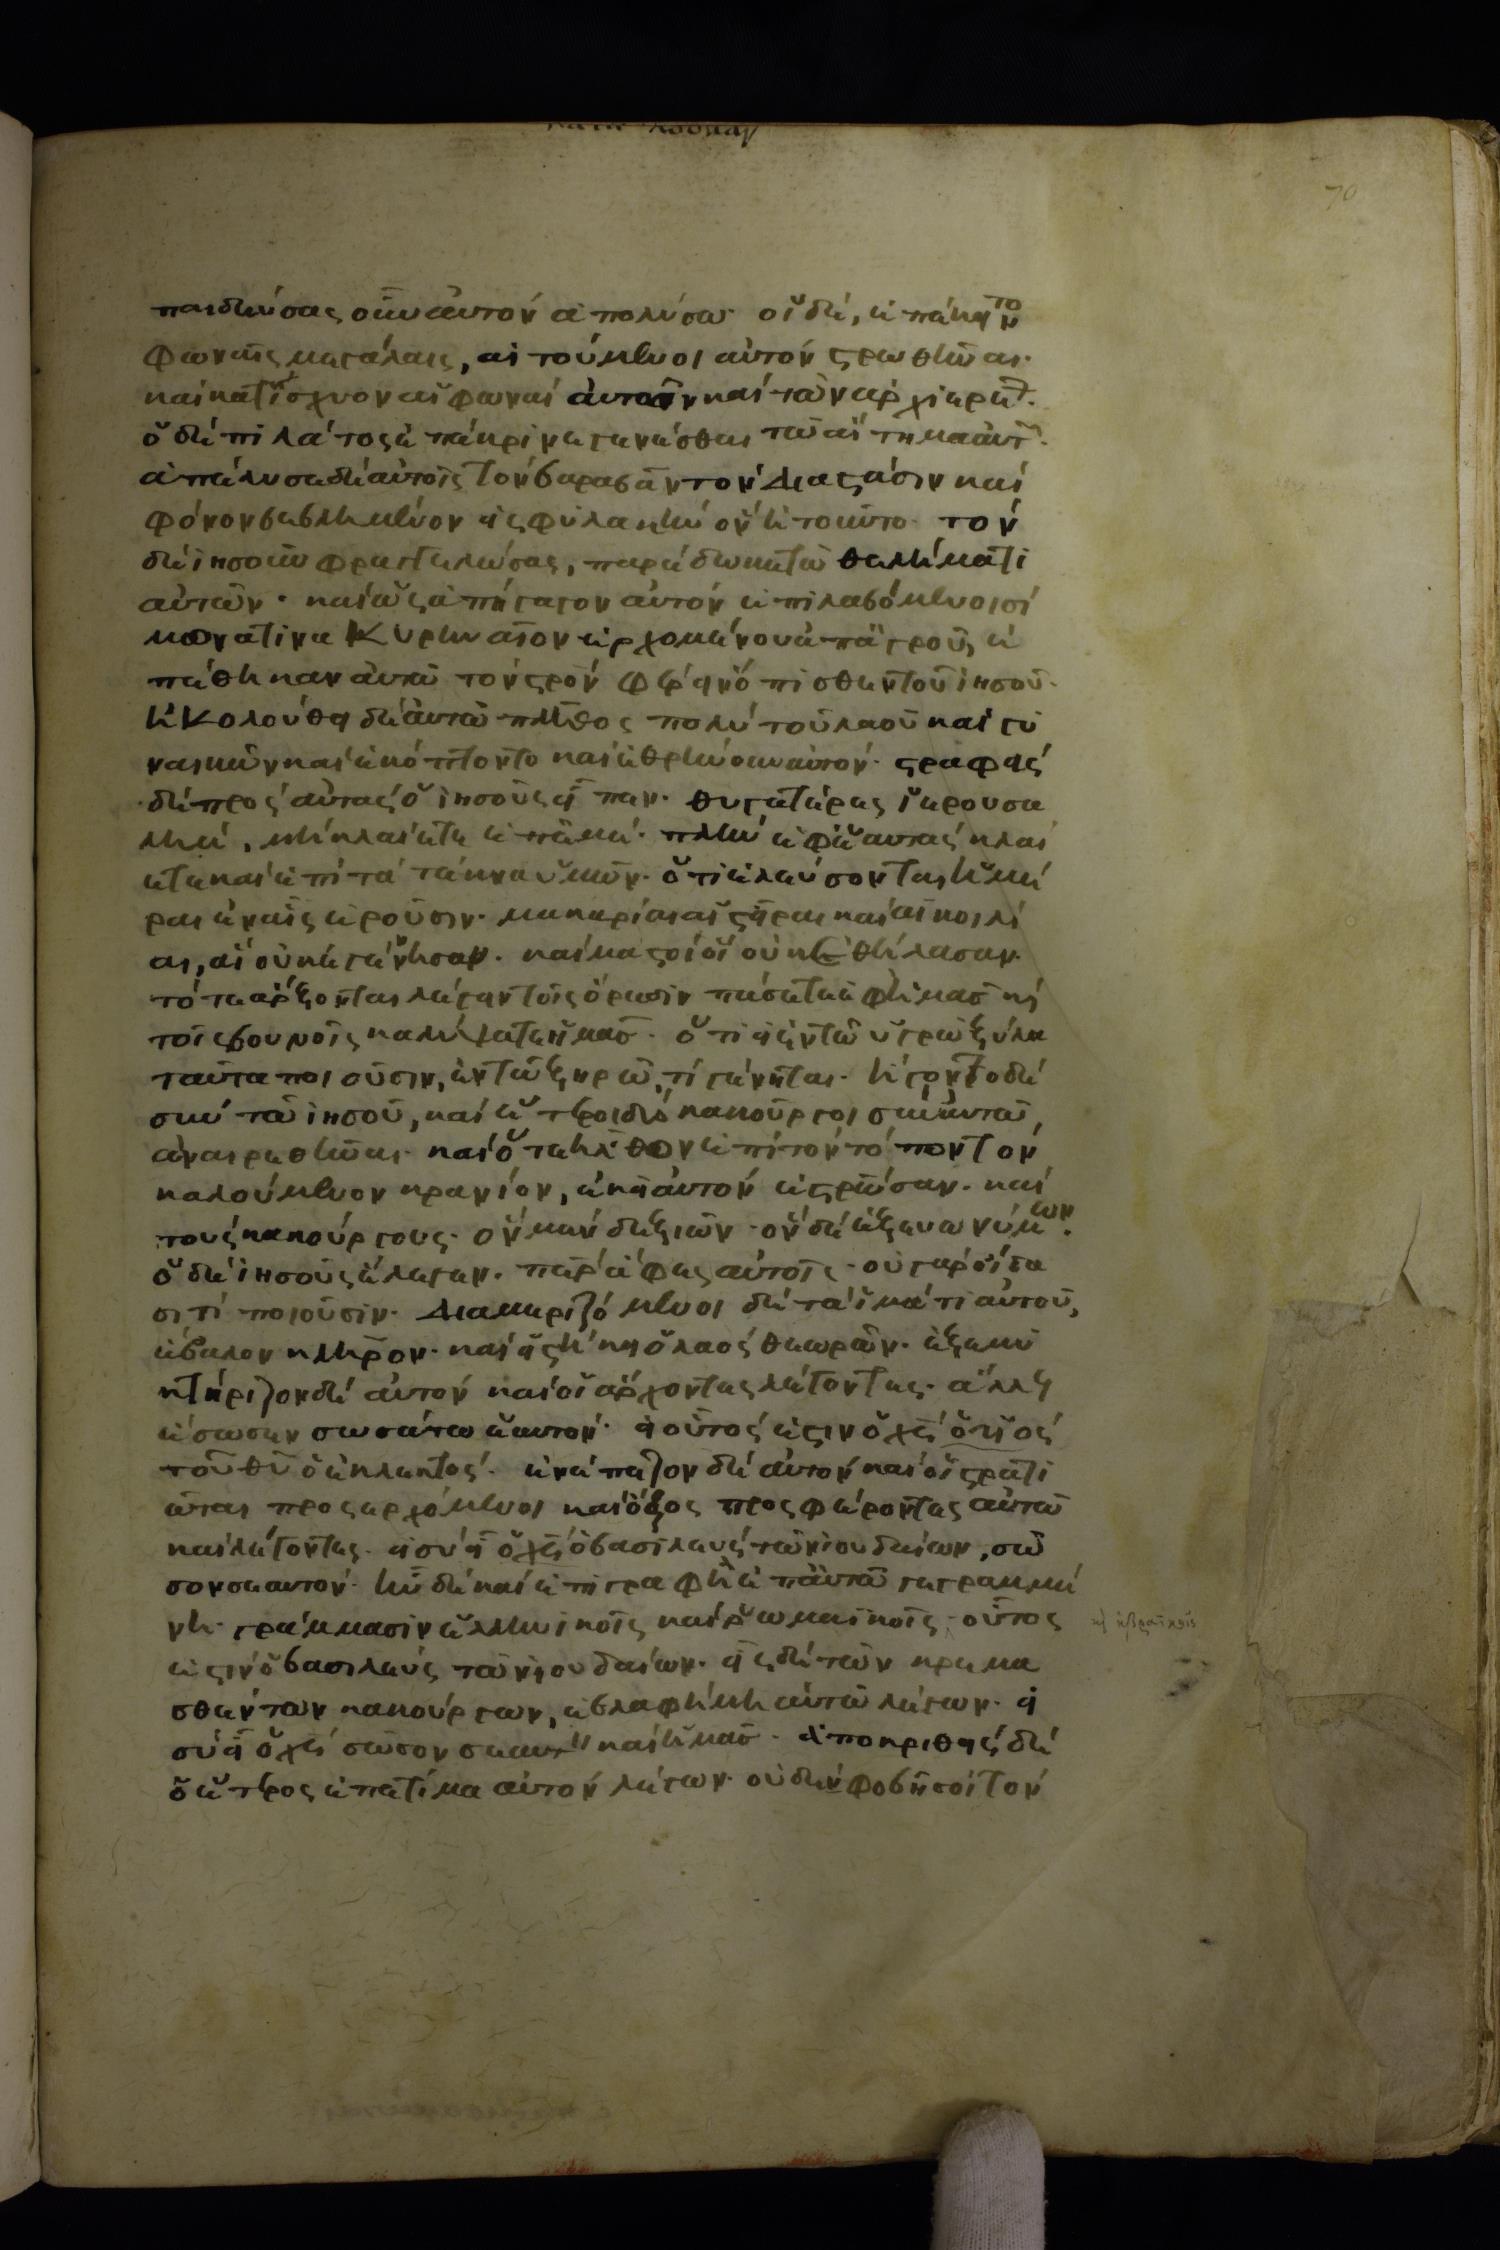 κατα λουκαν
70
παιδεύσας οὖν αὐτὸν ἀπολύσω· οἱ δὲ, ἐπέκειντο
φωναῖς μεγάλαις, αἰτούμενοι αὐτὸν στρωθῆναι·
καὶ κατίσχυον αἱ φωναὶ αὐτῶν καὶ τῶν ἀρχιερέ.
ὁ δὲ πιλάτος ἐπέκρινε γενέσθαι τὸ αἴτημα αὐτ.
ἀπέλυσε δὲ αὐτοῖς τὸν βαραβᾶν τὸν διαστάσιν καὶ
φόνον βεβλημένον εἰς φυλακὴν ὃν ἠτοῦντο· τὸν
δὲ ἰησοῦν φραγγελώσας, παρέδωκε τῷ θελήματι
αὐτῶν· καὶ ὡς ἀπήγαγον αὐτὸν ἐπιλαβόμενοι σί
μωνά τινα Κυρηναῖον ἐρχομένου ἀπ' ἀγροῦ, ἐ
πέθηκαν αὐτῷ τὸν στρον φέρειν ὄπισθεν τοῦ ἰησοῦ·
ἠκολούθει δὲ αὐτῷ πλῆθος πολὺ τοῦ λαοῦ καὶ γυ
ναικῶν καὶ ἐκόπτοντο καὶ ἐθρήνουν αὐτόν· στραφεὶς
δὲ πρὸς αὐτὰς ὁ ἰησοῦς εἶπεν· θυγατέρες ἱερουσα
λὴμ, μὴ κλαίετε ἐπ' ἐμέ· πλὴν ἐφ' ἑαυτὰς κλαί
ετε καὶ ἐπὶ τὰ τέκνα ὑμῶν· ὅτι ἐλεύσονται ἡμέ
ραι ἐν αἷς ἐροῦσιν· μακάριαι αἱ στεῖραι καὶ αἱ κοιλί
αι, αἳ οὐκ ἐγέννησαν· καὶ μαστοὶ οἳ οὐκ ἐθήλασαν·
τότε ἄρξονται λέγειν τοῖς ὄρεσιν πέσετε ἐφ' ἡμᾶς κ
τοῖς βουνοῖς καλύψατε ἡμᾶς· ὅτι εἰ ἐν τῷ ὑγρῷ ξύλῳ
ταῦτα ποιοῦσιν, ἐν τῷ ξηρῷ, τί γένηται· ἤγοντο δὲ
σὺν τῷ ἰησοῦ, καὶ ἕτεροι δύο κακοῦργοι σὺν αὐτῷ,
ἀναιρεθῆναι· καὶ ὅτε ἦλθον ἐπὶ τὸν τόπον τὸν
καλούμενον κρανίον, ἐκεῖ αὐτὸν ἐστρωσαν· καὶ
τοὺς κακούργους· ὃν μὲν δεξιῶν· ὃν δὲ ἐξ ευωνύμων·
ὁ δὲ ἰησοῦς ἔλεγεν· περ ἄφες αὐτοῖς· οὐ γὰρ οἴδα
σι τί ποιοῦσιν· διαμεριζόμενοι δὲ τὰ ἱμάτι αὐτοῦ,
ἔβαλον κλῆρον· καὶ εἱστήκει ὁ λαὸς θεωρῶν· ἐξεμυ
κτήριζον δὲ αὐτὸν καὶ οἱ ἄρχοντες λέγοντες· ἄλλους
ἔσωσεν σωσάτω ἑαυτόν· εἰ οὗτός ἐστιν ὁ χς ὁ υἱὸς
τοῦ θυ ὁ ἐκλεκτός· ἐνέπαιζον δὲ αὐτὸν καὶ οἱ στρατι
ῶται προσερχόμενοι καὶ ὄξος προσφέροντες αὐτῷ
καὶ λέγοντες· εἰ σὺ εἶ ὁ χς ὁ βασιλεὺς τῶν ἰουδαίων, σῶ
σον σεαυτόν· ἦν δὲ καὶ ἐπιγραφὴ ἐπ' αὐτῷ γεγραμμέ
νη· γράμμασιν ἑλληνικοῖς καὶ ῥωμαϊκοῖς· οὗτος
κ ἑβραϊκοῖς
ἐστιν ὁ βασιλεὺς τῶν ἰουδαίων· εἷς δὲ τῶν κρεμα
σθέντων κακούργων, ἐβλασφήμη αὐτῷ λέγων· εἰ
σὺ εἶ ὁ χς σῶσον σεαυτ καὶ ἡμᾶς· ἀποκριθεὶς δὲ
ὁ ἕτερος ἐπετίμα αὐτὸν λέγων· οὐδὲν φοβῇ σοὶ τὸν